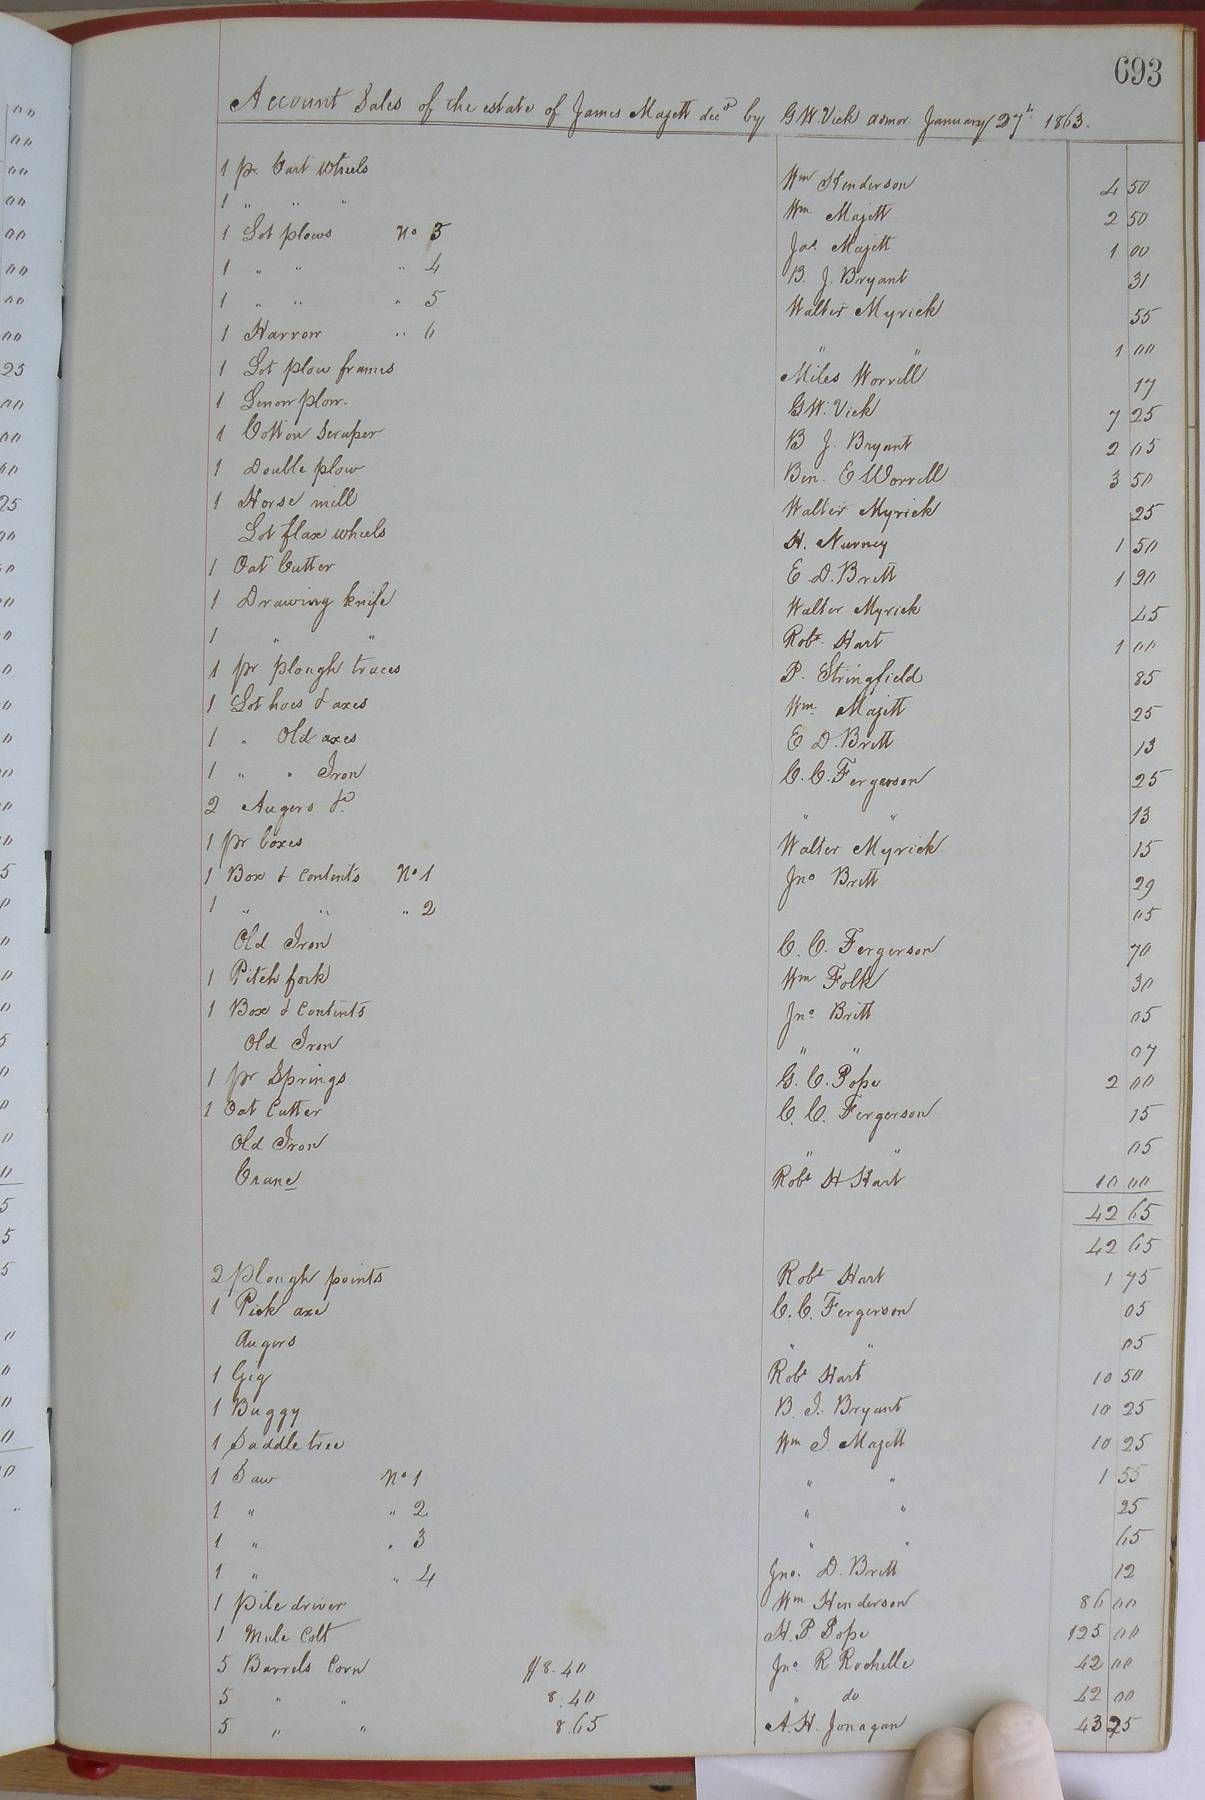 693
Account Sales of the estate of James Majett decd by G W. Vick admor January 27th 1863.
1 pr. Cart wheels Wm Henderson 4 50
1 " " " Wm Majett 2 50
1 Lot plows No 3 Jas. Majett 1 00
1 " " " 4 B. J. Bryant 31
1 " " " 5 Walter Myrick 55
1 Harrow " 6 " " 1 00
1 Lot plow frames Miles Worrell 17
1 plow. G W. Vick 7 25
1 Cotton Scraper B J. Bryant 2 05
1 Double plow Ben. E Worrell 3 50
1 Horse mill Walter Myrick 25
Lot flax wheels H. Nurney 1 50
1 Oat Cutter E D. Britt 1 20
1 Drawing knife Walter Myrick 45
1 " " Robt. Hart 1 00
1 pr plough traces P. Stringfield 85
1 Lot hoes & axes Wm. Majett 25
1 " Old axes E D. Britt 13
1 " " Iron C. C. Fergerson 25
2 Augers &c " " 13
1 pr boxes Walter Myrick 15
1 Box & Contents No 1 Jno Britt 29
1 " " " 2 05
Old Iron C. C. Fergerson 70
1 Pitch fork Wm Folk 30
1 Box & Contents Jno. Britt 05
Old Iron " " 07
1 pr Springs G. C. Pope 2 00
1 Oat Cutter C. C. Fergerson 15
Old Iron " " 05
Crane Robt H Hart 10 00
42 65
42 65
2 plough points Robt Hart 1 75
1 Pick axe C. C. Fergerson 05
Augers " " 05
1 Gig Robt Hart 10 50
1 Buggy B. J. Bryant 10 25
1 Saddle tree Wm J. Majett 10 25
1 Saw No 1 " " 1 55
1 " " 2 " " 25
1 " " 3 " " 65
1 " " 4 Jno. D. Britt 12
1 pile driver Wm Henderson 86 00
1 Mule Colt H. P. Pope 125 00
5 Barrels Corn $8.40 Jno. R Rochelle 42 00
5 " " 8.40 " do 42 00
5 " " 8.65 A. H. Jonagan 43 25